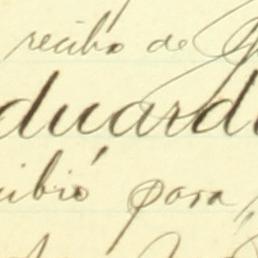 recibo de
duard
cibió para